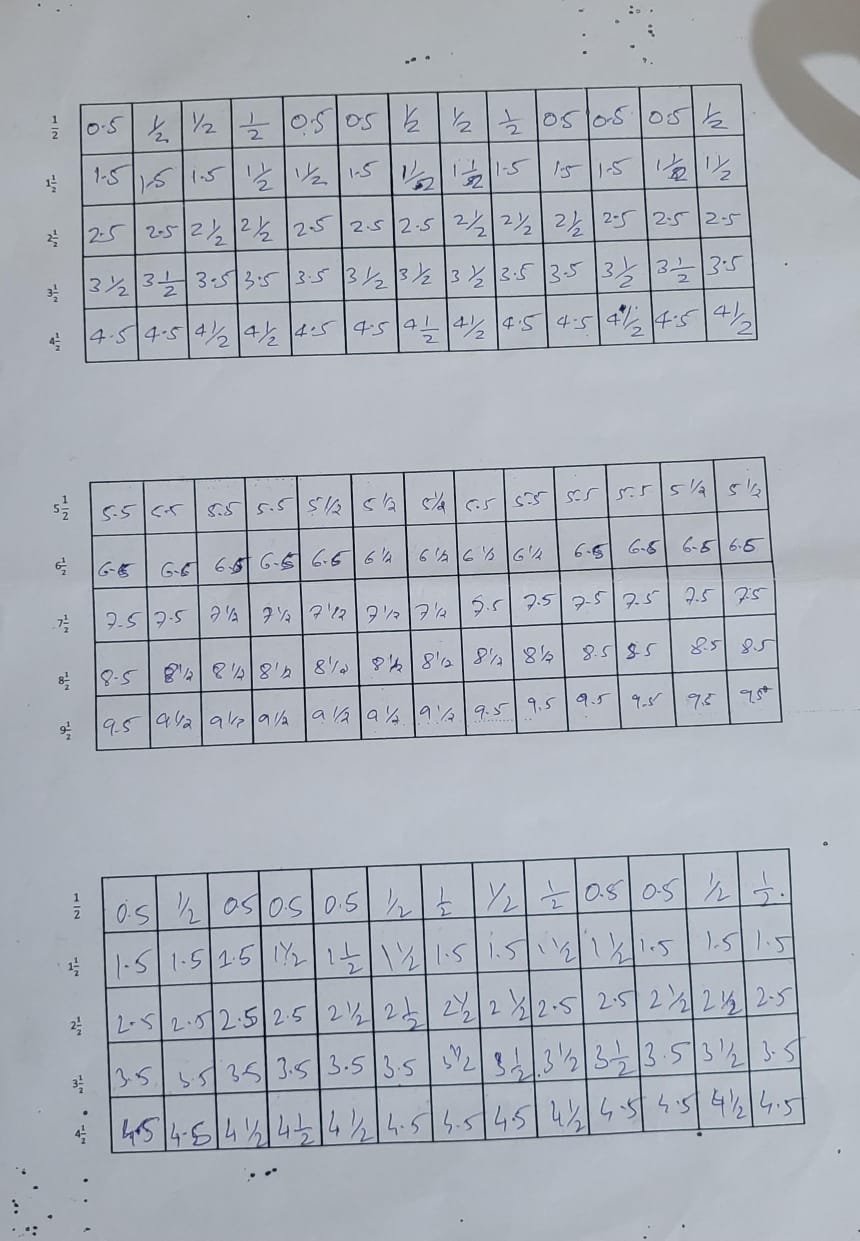 ½ 0.5 ½ ½ ½ 0.5 0.5 ½ ½ ½ 0.5 0.5 0.5 ½
1½ 1.5 1.5 1.5 1½ 1½ 1.5 1½ 1½ 1.5 1.5 1.5 1½ 1½
2½ 2.5 2.5 2½ 2½ 2.5 2.5 2.5 2½ 2½ 2½ 2.5 2.5 2.5
3½ 3½ 3½ 3.5 3.5 3.5 3½ 3½ 3½ 3.5 3.5 3½ 3½ 3.5
4½ 4.5 4.5 4½ 4½ 4.5 4.5 4½ 4½ 4.5 4.5 4½ 4.5 4½
5½ 5.5 5.5 5.5 5.5 5½ 5½ 5½ 5.5 5.5 5.5 5.5 5½ 5½
6½ 6.5 6.5 6.5 6.5 6.5 6½ 6½ 6½ 6½ 6.5 6.5 6.5 6.5
7½ 7.5 7.5 7½ 7½ 7½ 7½ 7½ 7.5 7.5 7.5 7.5 7.5 7.5
8½ 8.5 8½ 8½ 8½ 8½ 8½ 8½ 8½ 8½ 8.5 8.5 8.5 8.5
9½ 9.5 9½ 9½ 9½ 9½ 9½ 9½ 9.5 9.5 9.5 9.5 9.5 9.5
½ 0.5 ½ 0.5 0.5 0.5 ½ ½ ½ ½ 0.5 0.5 ½ ½.
1½ 1.5 1.5 1.5 1½ 1½ 1½ 1.5 1.5 1½ 1½ 1.5 1.5 1.5
2½ 2.5 2.5 2.5 2.5 2½ 2½ 2½ 2½ 2.5 2.5 2½ 2½ 2.5
3½ 3.5 3.5 3.5 3.5 3.5 3.5 3½ 3½ 3½ 3½ 3.5 3½ 3.5
4½ 4.5 4.5 4½ 4½ 4½ 4.5 4.5 4.5 4½ 4.5 4.5 4½ 4.5